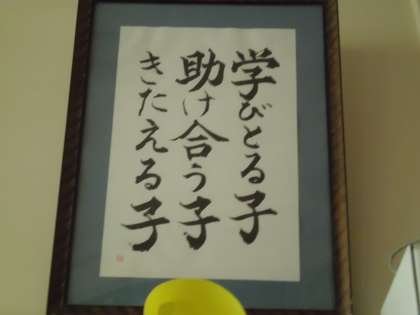 学びとる子
助け合う子
きたえる子